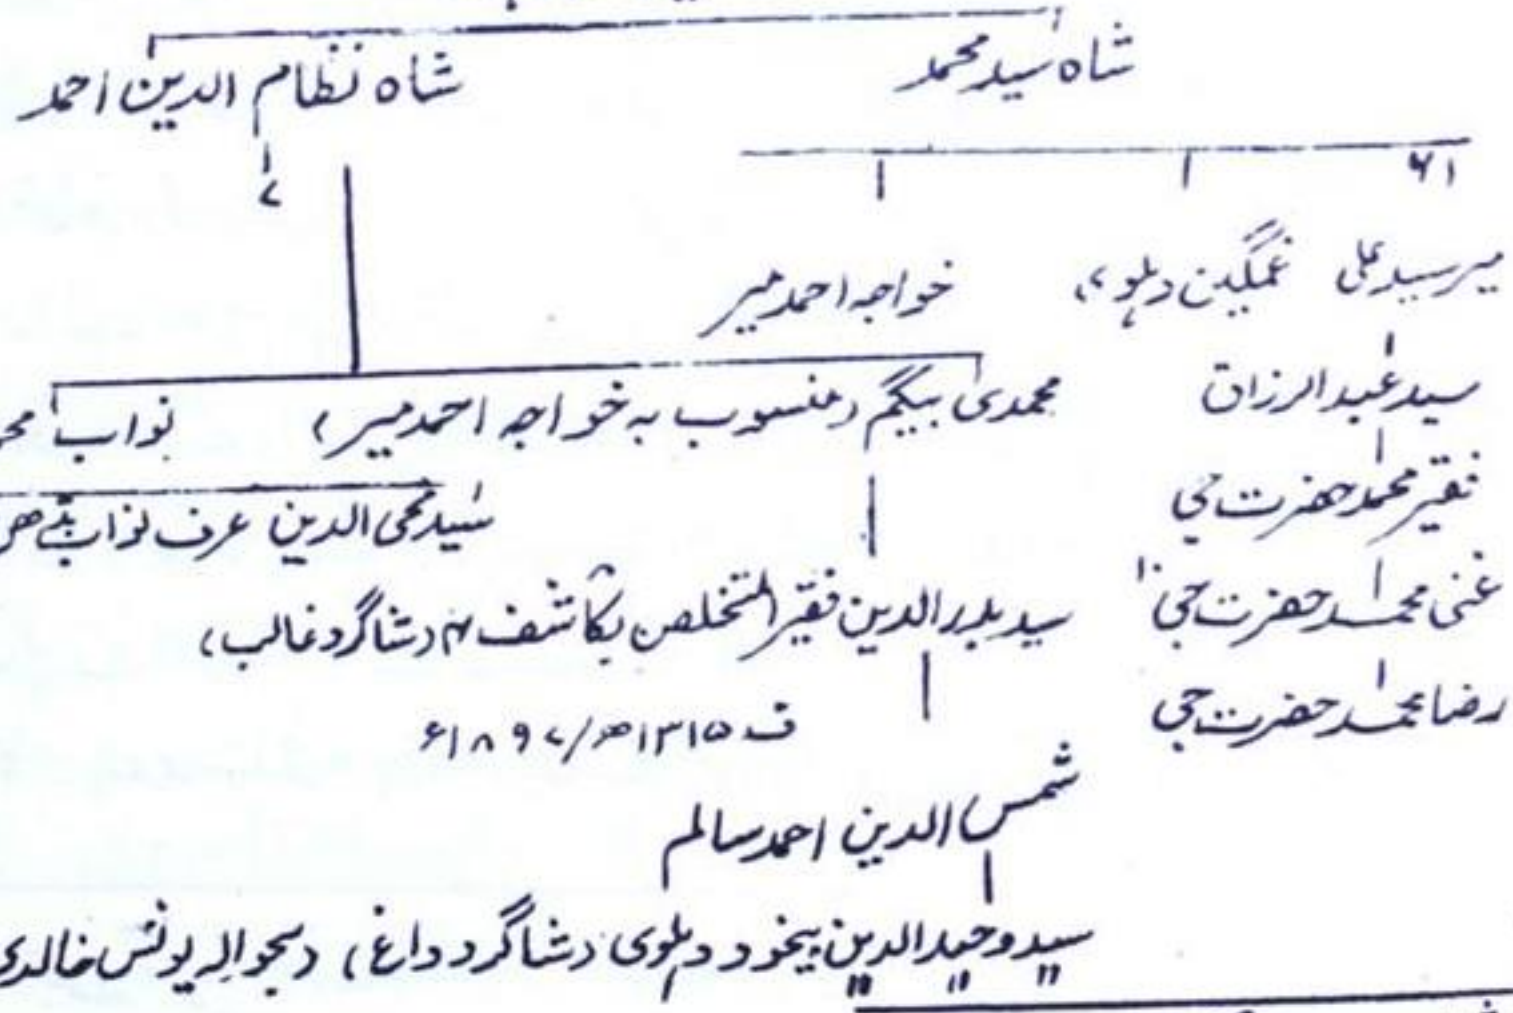 شاہ سید محمد شاہ نظام الدین احمد
۶۱ ۷
میر سید علی غمگین دہلوی، خواجہ احمد میر
سید عبدالرزاق محمدی بیگم (منسوب بہ خواجہ احمد میر) نواب
فقیر محمد حضرت جی سید محی الدین عرف نواب بڈھے
غنی محمد حضرت جی سید بدرالدین فقیر المتخلص بکاشف (شاگرد غالب)
رضا محمد حضرت جی ف ۱۳۱۵ھ/۱۸۹۷ء
شمس الدین احمد سالم
سید وحید الدین بیخود دہلوی (شاگرد داغ) (بحوالہ یونس خالدی